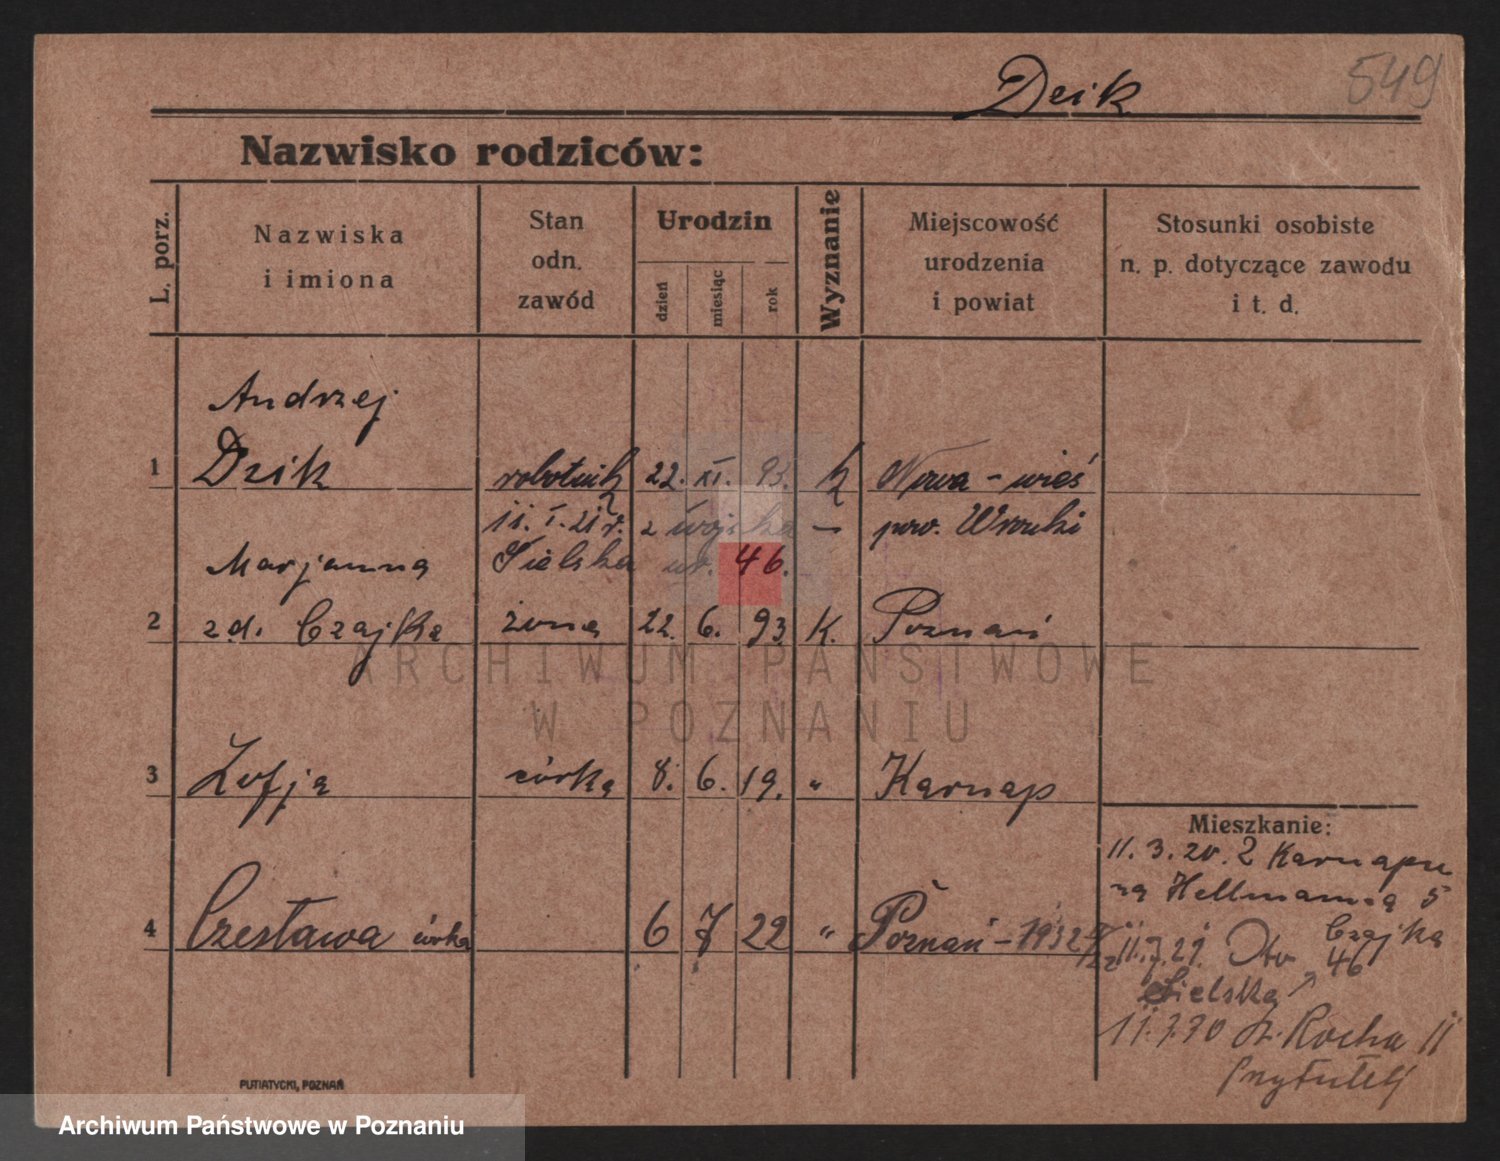 549
Dzik
Nazwisko rodziców:
L. porz.
Nazwiska
i imiona
Stan
odn.
zawód
Urodzin
dzień
miesiąc
rok
Wyznanie
Miejscowość
urodzenia
i powiat
Stosunki osobiste
n. p. dotyczące zawodu
i t. d.
Andrzej
1 Dzik robotnik 22. XI. 93. k Nowa-wieś
11. I. 21 r. z wojska – pow. Wronki
Marjanna Sielska nr. 46.
2 zd. Czajka żona 22. 6. 93 K. Poznań
ARCHIWUM PAŃSTWOWE
W POZNANIU
3 Zofja córka 8. 6. 19. " Karnap
Mieszkanie:
11. 3. 20. z Karnapu
na Hellmanna 5
4 Czesława córka 6 7 22 " Poznań - 1932
Czajka
11.7.21. Dtv 46
Sielska
11.7.30 św. Rocha 11
Przytulek
PUTIATYCKI, POZNAŃ
Archiwum Państwowe w Poznaniu